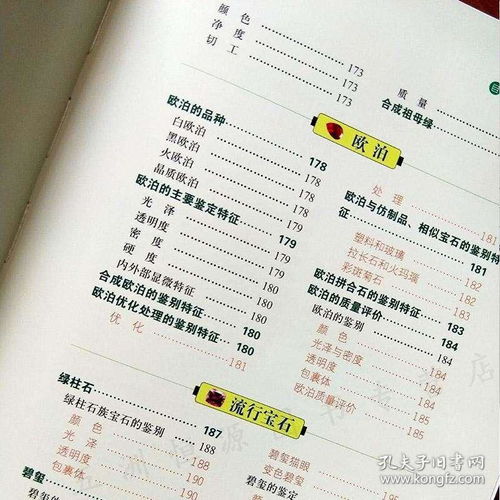 颜色 173
净度 173
切工 173
质量
合成祖母绿
欧泊
欧泊的品种 178
白欧泊 178
黑欧泊 178
火欧泊 178
晶质欧泊 178
欧泊的主要鉴定特征 179
光泽 179
透明度 179
密度 179
硬度 180
内外部显微特征 180
合成欧泊的鉴别特征 180
欧泊优化处理的鉴别特征 180
优化 181
处理 181
欧泊与仿制品、相似宝石的鉴别特
征 181
塑料和玻璃 182
拉长石和火玛瑙 182
彩斑菊石 182
欧泊拼合石的鉴别特征 183
欧泊的质量评价 184
欧泊的鉴别 184
颜色 184
光泽与密度 184
透明度 184
包裹体 185
欧泊质量评价 185
流行宝石
绿柱石 187
绿柱石族宝石的鉴别 188
颜色 188
光泽 188
透明度 190
包裹体 190
碧玺
碧玺猫眼
变色碧玺
碧玺的鉴定
孔夫子旧书网
kongfz.com